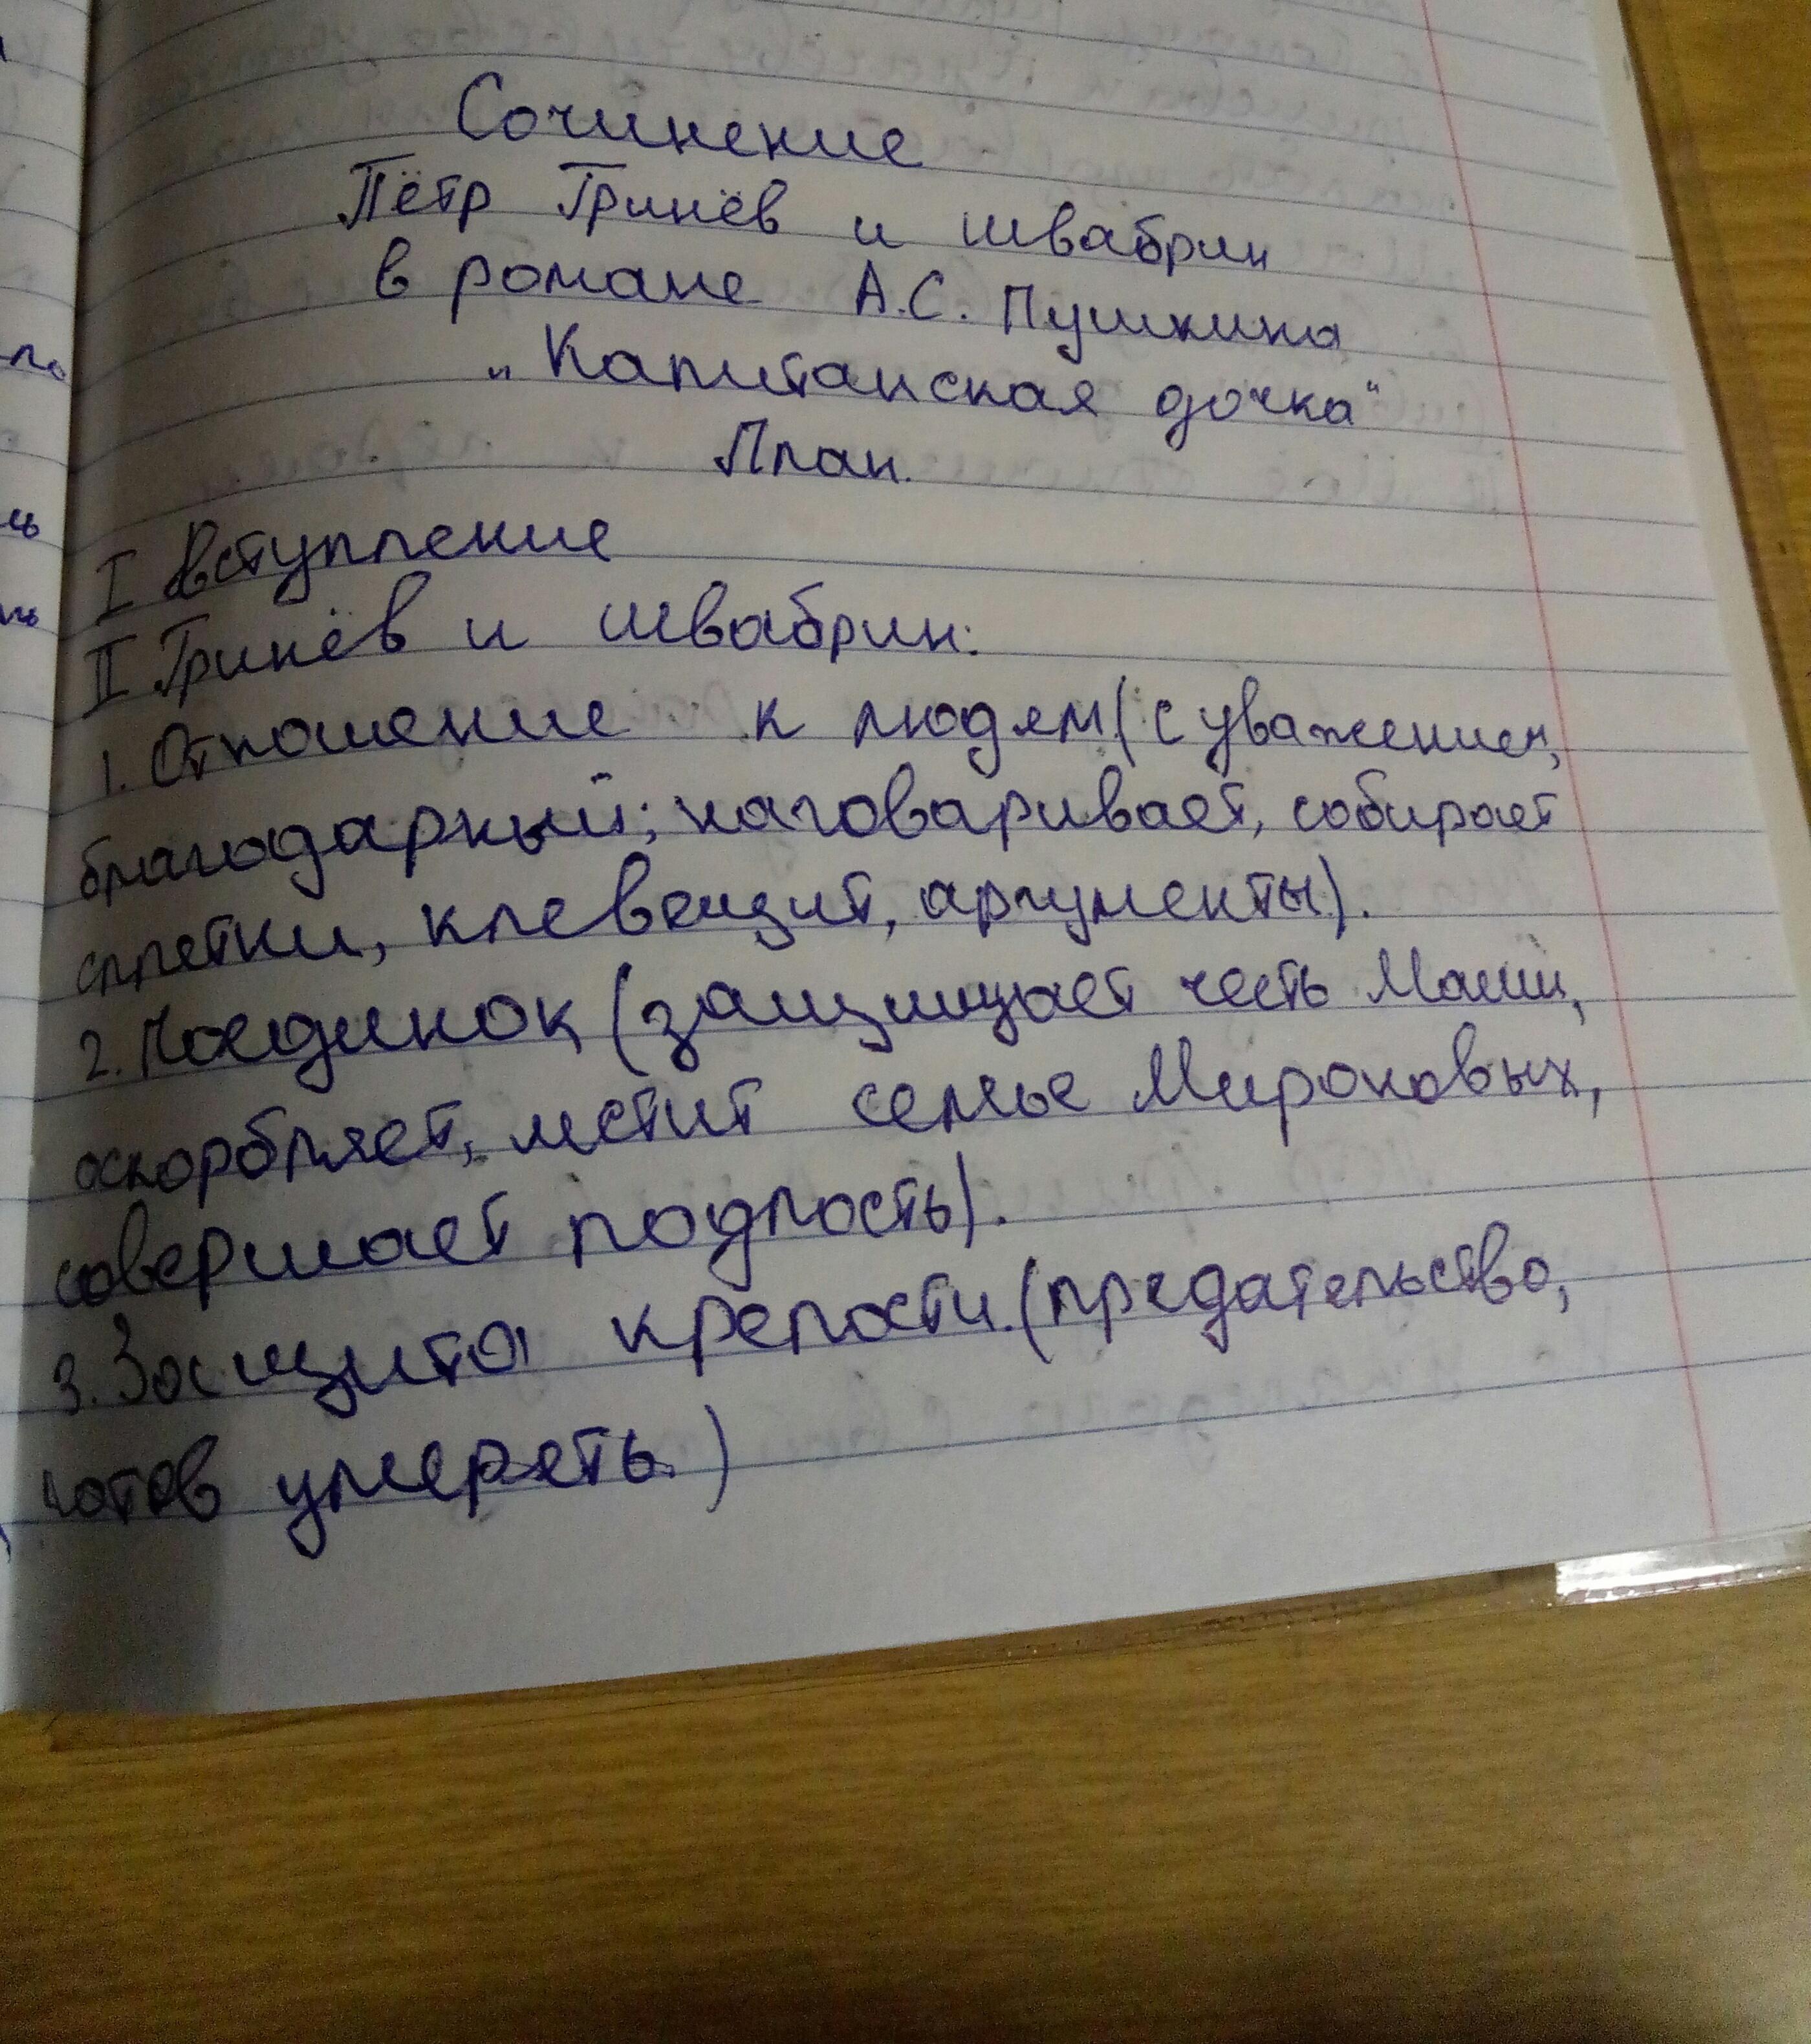 Сочинение
Пётр Гринёв и швабрин
в романе А.С. Пушкина
„Капитанская дочка“
План.
I Вступление
II Гринёв и швабрин:
1. Отношение к людям (с уважением,
благодарный; наговаривает, собирает
сплетки, клевещит, аргументы).
2. Поединок (защищает честь Маши,
оскорбляет, мстит семье Мироновых,
совершает подлость).
3. Защита крепости. (предательство,
готов умереть.)